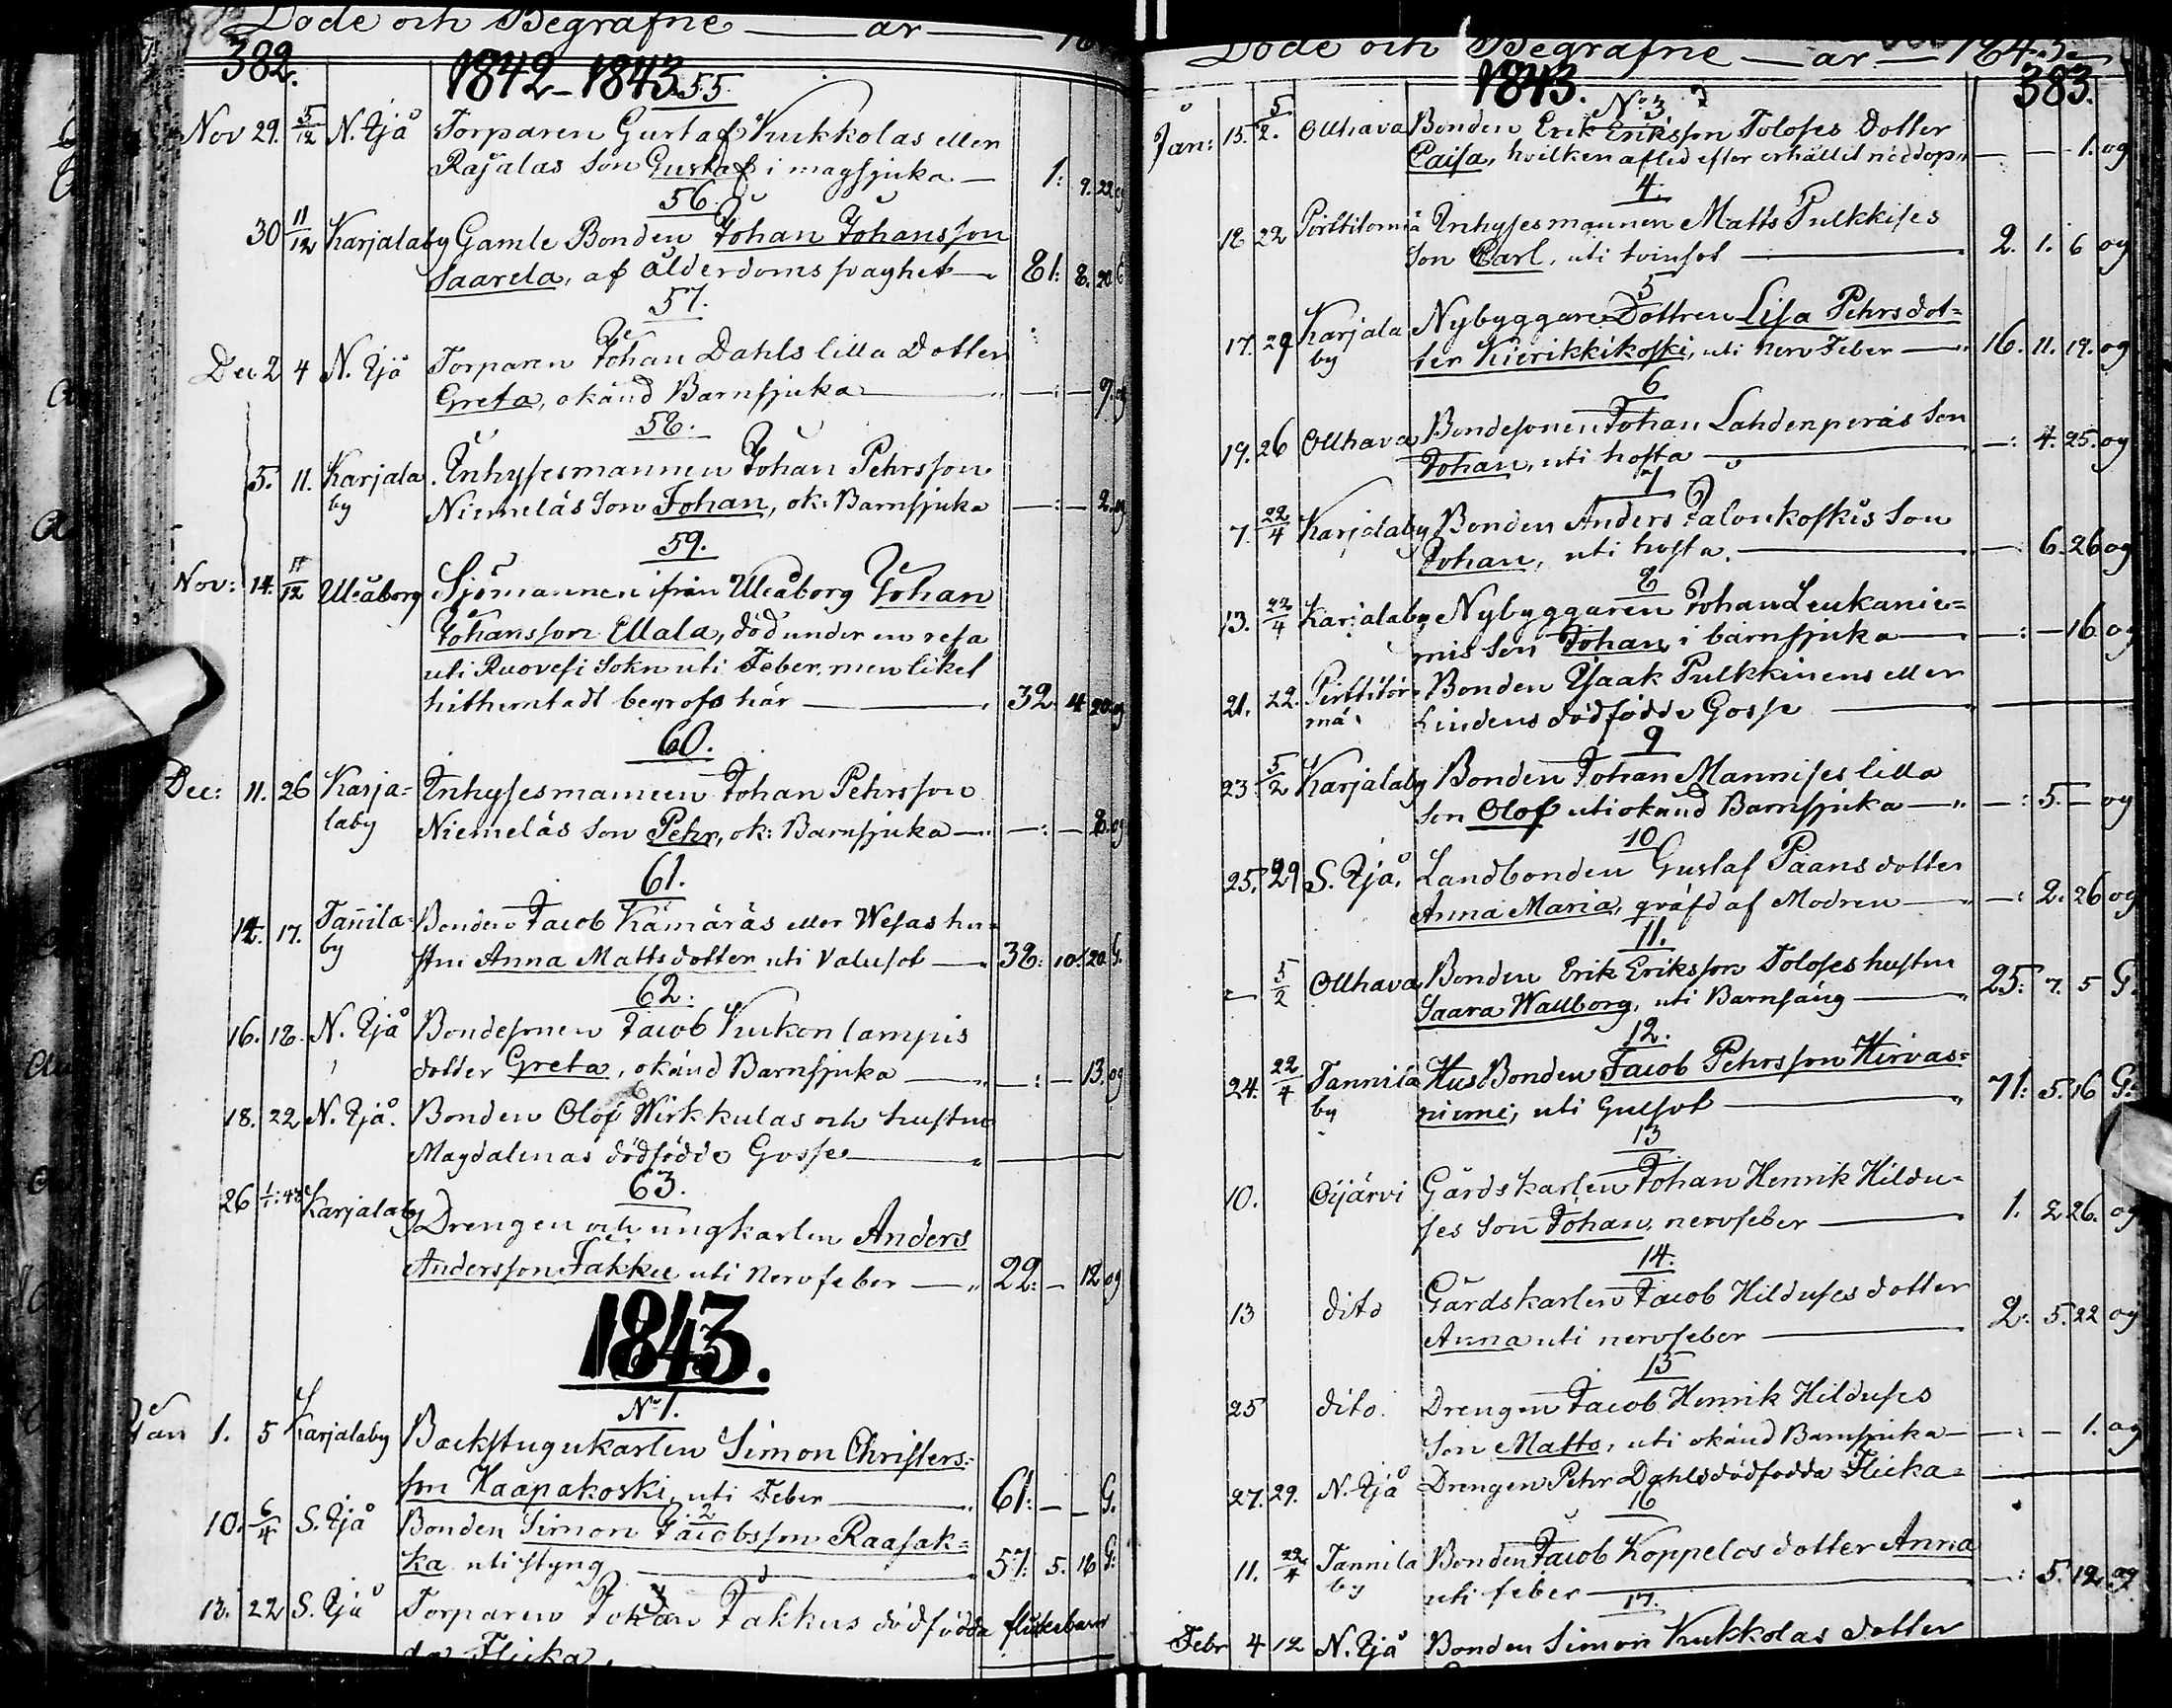 Döde och Begrafne — år —
382.
1842-1843
55.
Nov 29. 5/12 N. Ijå Torparen Gustaf Kukkolas eller
Rajalas Son Gustaf i magsjuka — 1: 9. 22 og
56.
30 11/12 Karjalaby Gamle Bonden Johan Johansson
Saarela, af ålderdoms svaghet — 81: 8. 20 G
57.
Dec 2 4 N. Ijå Torparen Johan Dahls lilla Dotter
Greta, okänd Barnsjuka — : — 9. og
58.
5. 11. Karjala Inhysesmannen Johan Pehrsson
by Niemeläs Son Johan, ok: Barnsjuka — : — 2. og
59.
Nov: 14. 11/12 Uleåborg Sjömannen ifrån Uleåborg Johan
Johansson Ulala, död under en resa
uti Ruovesi Sokn uti Feber, men liket
hithemtadt begrofs här — 32. 4 20. og
60.
Dec: 11. 26 Karja= Inhysesmannen Johan Pehrsson
laby Niemeläs Son Pehr, ok: Barnsjuka — : — 8. og
61.
14. 17. Tannila= Bonden Jacob Kämäräs eller Wesas hu=
by stru Anna Mattsdotter uti Valusot — 38: 10. 20. G.
62.
16. 18. N. Ijå Bondesonen Jacob Kukonlampis
dotter Greta, okänd Barnsjuka — : — 13. og
18. 22 N. Ijå. Bonden Olof Wirkkulas och hustru
Magdalenas dödfödde Gosse —
63.
26 1/1:43 Karjalaby Drengen och ungkarlen Anders
Andersson Jakku uti Nervfeber — 22: — 12 og
1843.
No 1.
Jan 1. 5 Karjalaby Backstugukarlen Simon Christers=
son Haapakoski, uti Feber — 61: — — G.
2
10. 6/4 S. Ijå Bonden Simon Jacobsson Raasak=
ka uti styng — 57: 5. 16 G.
12. 22 S. Ijå Torparen Johan Jakkus dödfödda flickebarn
da Flicka.
Döde och Begrafne — år — 1843.
1843.
383.
No 3.
Jan: 15. 5/2. Ollhava Bonden Erik Eriksson Toloses Dotter
Caisa, hvilken afled efter erhållit nöddop — — 1. og
4.
18 22 Pirttitörmä Inhysesmannen Matts Pulkkises
Son Carl, uti tvinsot — 2. 1. 6 og
5
17. 29 Karjala Nybyggare Dottren Lisa Pehrsdot=
by ter Kierikkikoski, uti Nerv Feber — 16. 11. 19. og
6
19. 26 Ollhava Bondesonen Johan Lahdenperäs Son
Johan, uti hosta — : 4. 25. og
7
7. 22/4 Karjalaby Bonden Anders Jalonkoskis Son
Johan, uti hosta. — 6. 26 og
8
13. 22/4 Karjalaby Nybyggaren Johan Leukanie=
mis Son Johan i barnsjuka — : — 16 og
21. 22. Pirttitör= Bonden Isaak Pulkkinens eller
mä Lindens dödfödde Gosse —
9
23 5/2 Karjalaby Bonden Johan Mannises lilla
Son Olof uti okänd Barnsjuka — : 5. — og
10
25. 29 S. Ijå. Landbonden Gustaf Paans dotter
Anna Maria, qväfd af Modren — : 2. 26 og
11.
5/2 Ollhava Bonden Erik Eriksson Toloses hustru
Saara Wallborg, uti Barnsäng — 25: 7. 5 G.
12.
24. 22/4 Tannila HusBonden Jacob Pehrsson Hirvas=
by niemi, uti Gulsot — 71: 5. 16 G.
13
10. Oijärvi Gårdskarlen Johan Henrik Hildu=
ses Son Johan, nervfeber — 1. 2 26. og
14.
13 dito Gårdskarlen Jacob Hilduses dotter
Anna uti nervfeber — 2. 5. 22 og
15
25 dito. Drengen Jacob Henrik Hilduses
Son Matts, uti okänd Barnsjuka — : — 1. og
27. 29. N. Ijå Drengen Pehr Dahls dödfödda Flicka —
16
11. 22/4 Tannila Bonden Jacob Koppelos dotter Anna
by uti feber — : 5. 12 og
17.
Febr 4 12 N. Ijå Bonden Simon Kukkolas dotter